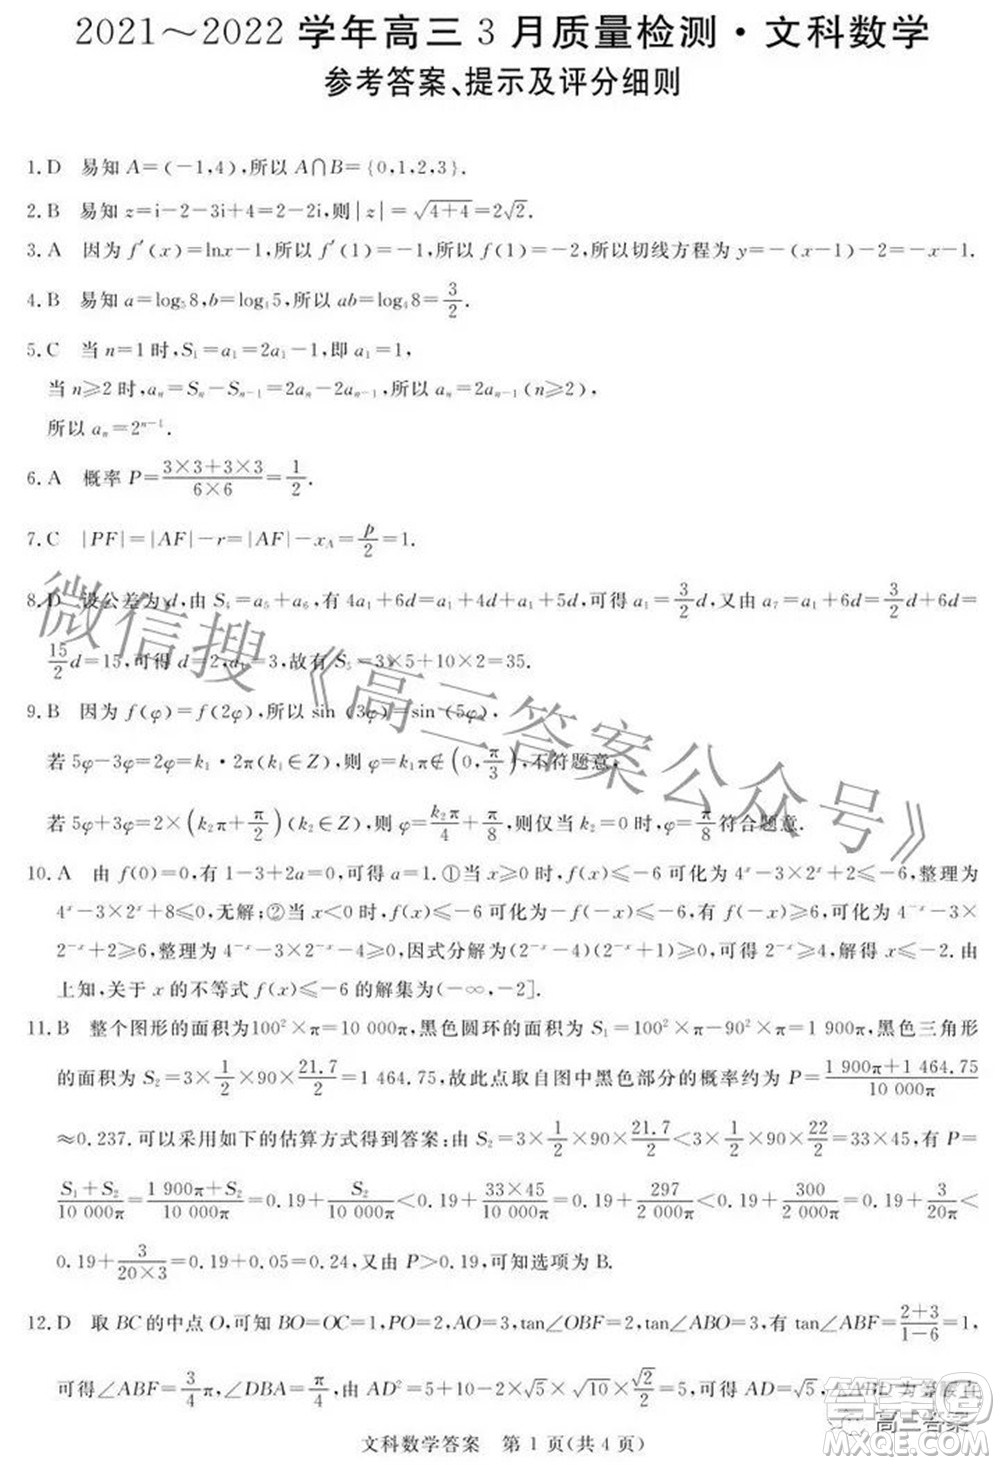 2021～2022 学年高三 3 月质量检测·文科数学
参考答案、提示及评分细则
1. D　易知 A=(-1,4),所以 A∩B={0,1,2,3}.
2. B　易知 z=i-2-3i+4=2-2i,则|z|=√(4+4)=2√2.
3. A　因为 f′(x)=lnx-1,所以 f′(1)=-1,所以 f(1)=-2,所以切线方程为 y=-(x-1)-2=-x-1.
4. B　易知 a=log₅8,b=log₄5,所以 ab=log₄8=3/2.
5. C　当 n=1 时,S₁=a₁=2a₁-1,即 a₁=1,
当 n≥2 时,aₙ=Sₙ-Sₙ₋₁=2aₙ-2aₙ₋₁,所以 aₙ=2aₙ₋₁(n≥2),
所以 aₙ=2ⁿ⁻¹.
6. A　概率 P=(3×3+3×3)/(6×6)=1/2.
7. C　|PF|=|AF|-r=|AF|-x_A=p/2=1.
8. D　设公差为 d,由 S₄=a₅+a₆,有 4a₁+6d=a₁+4d+a₁+5d,可得 a₁=3/2 d,又由 a₇=a₁+6d=3/2 d+6d=
15/2 d=15,可得 d=2,a₁=3,故有 S₅=3×5+10×2=35.
9. B　因为 f(φ)=f(2φ),所以 sin (3φ)=sin (5φ),
若 5φ-3φ=2φ=k₁·2π(k₁∈Z),则 φ=k₁π∉(0,π/3),不符题意,
若 5φ+3φ=2×(k₂π+π/2)(k₂∈Z),则 φ=k₂π/4+π/8,则仅当 k₂=0 时,φ=π/8 符合题意.
10. A　由 f(0)=0,有 1-3+2a=0,可得 a=1.①当 x≥0 时,f(x)≤-6 可化为 4ˣ-3×2ˣ+2≤-6,整理为
4ˣ-3×2ˣ+8≤0,无解;②当 x<0 时,f(x)≤-6 可化为-f(-x)≤-6,有 f(-x)≥6,可化为 4⁻ˣ-3×
2⁻ˣ+2≥6,整理为 4⁻ˣ-3×2⁻ˣ-4≥0,因式分解为(2⁻ˣ-4)(2⁻ˣ+1)≥0,可得 2⁻ˣ≥4,解得 x≤-2.由
上知,关于 x 的不等式 f(x)≤-6 的解集为(-∞,-2].
11. B　整个图形的面积为100²×π=10 000π,黑色圆环的面积为 S₁=100²×π-90²×π=1 900π,黑色三角形
的面积为 S₂=3×1/2×90×21.7/2=1 464.75,故此点取自图中黑色部分的概率约为 P=(1 900π+1 464.75)/(10 000π)
≈0.237.可以采用如下的估算方式得到答案:由 S₂=3×1/2×90×21.7/2<3×1/2×90×22/2=33×45,有 P=
(S₁+S₂)/(10 000π)=(1 900π+S₂)/(10 000π)=0.19+S₂/(10 000π)<0.19+(33×45)/(10 000π)=0.19+297/(2 000π)<0.19+300/(2 000π)=0.19+3/(20π)<
0.19+3/(20×3)=0.19+0.05=0.24,又由 P>0.19,可知选项为 B.
12. D　取 BC 的中点 O,可知 BO=OC=1,PO=2,AO=3,tan∠OBF=2,tan∠ABO=3,有 tan∠ABF=(2+3)/(1-6)=1,
可得∠ABF=3/4 π,∠DBA=π/4,由 AD²=5+10-2×√5×√10×√2/2=5,可得 AD=√5,
文科数学答案　第 1 页(共 4 页)
微信搜《高三答案公众号》
高三答案
答案圈
MXQE.COM